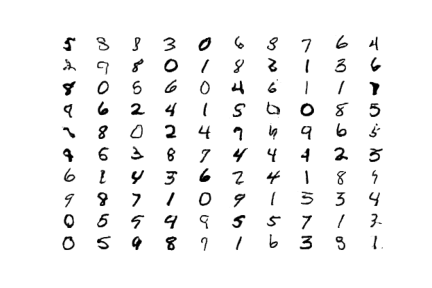 5 8 8 3 0 6 8 7 6 4
2 9 8 0 1 8 2 1 3 6
8 0 5 6 0 4 6 1 1 7
9 6 2 4 1 5 6 0 8 5
8 0 2 4 9 9 6
9 6 3 8 7 4 4 4 2 5
6 1 4 3 6 2 4 1 8 9
9 8 7 1 0 9 1 5 3 4
0 5 9 4 9 5 5 7 1 3
0 5 9 8 9 1 6 3 8 1